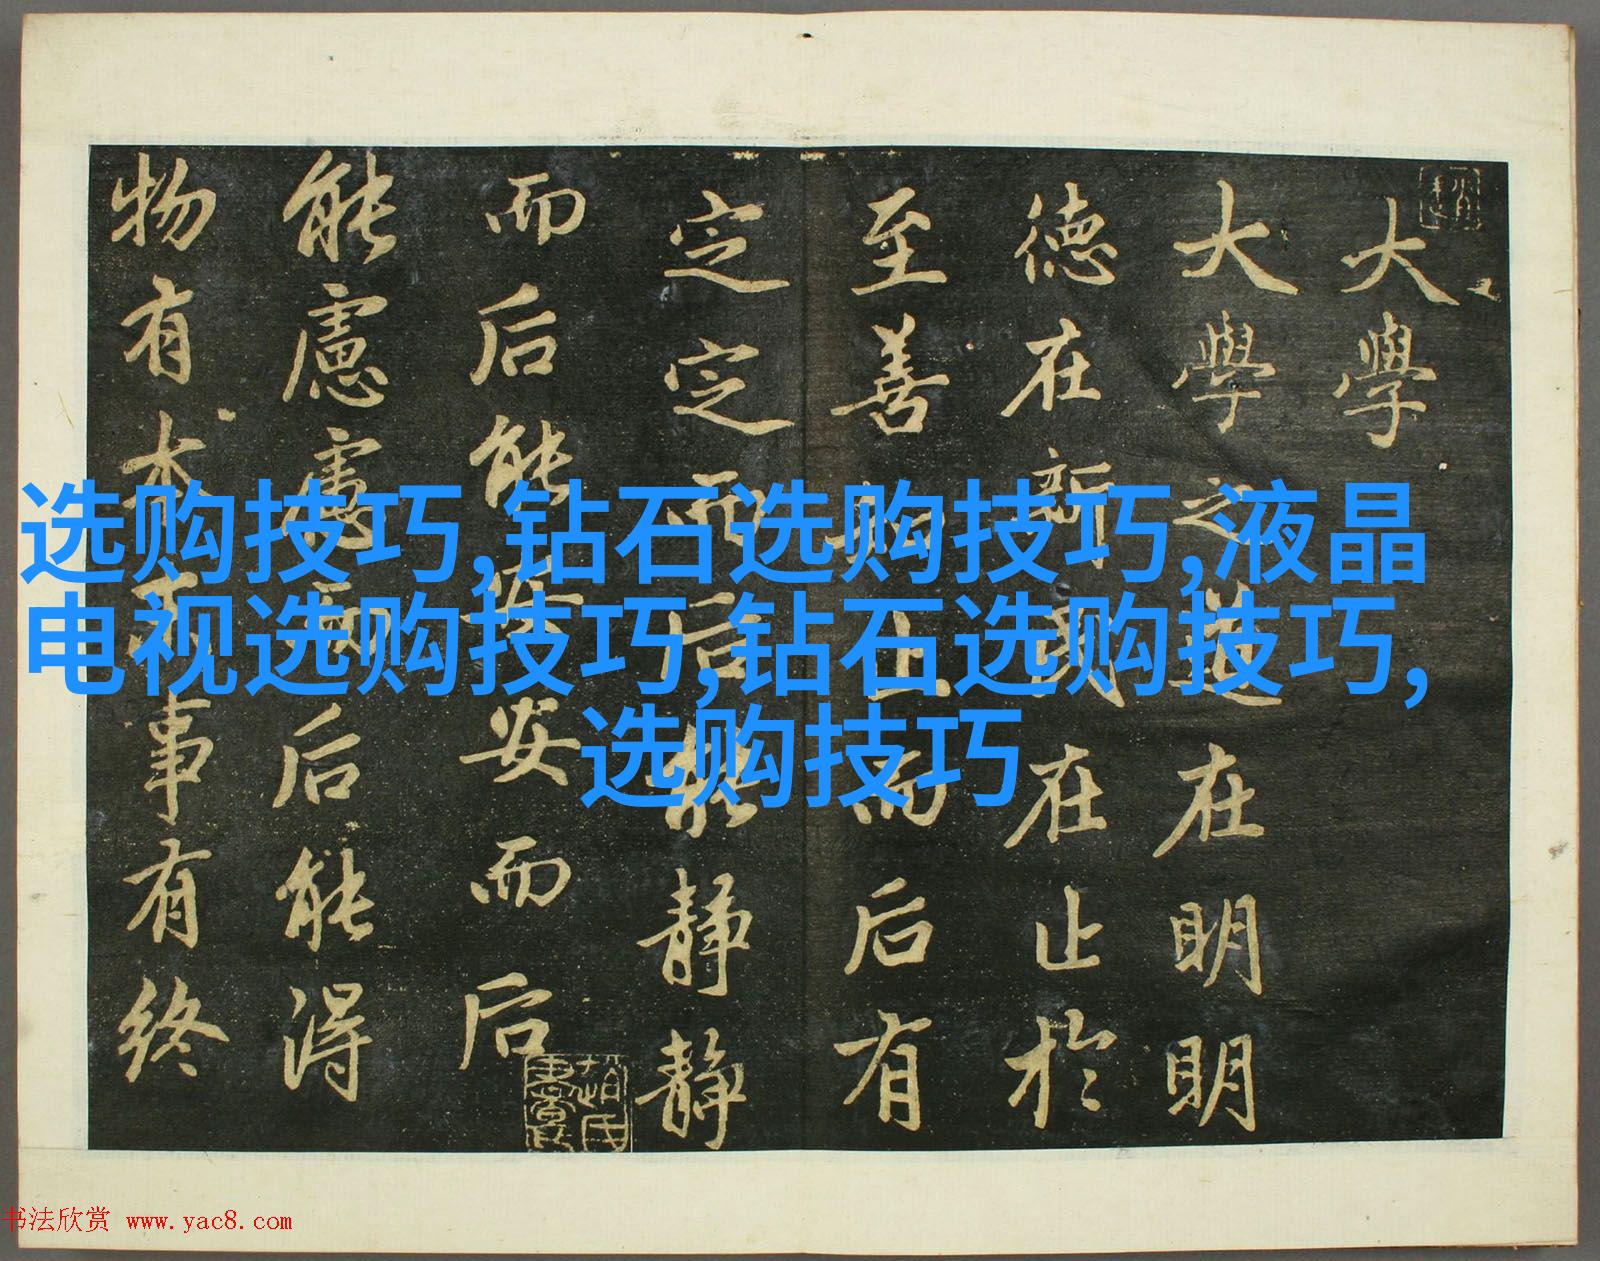 大學
大學之道在明明
德在新民在止於
至善知止而后有
定定而后能靜靜
而后能安安而后
能慮慮而后能得
物有本末事有終
选购技巧,钻石选购技巧,液晶
电视选购技巧,钻石选购技巧,
选购技巧
书法欣赏 www.yac8.com